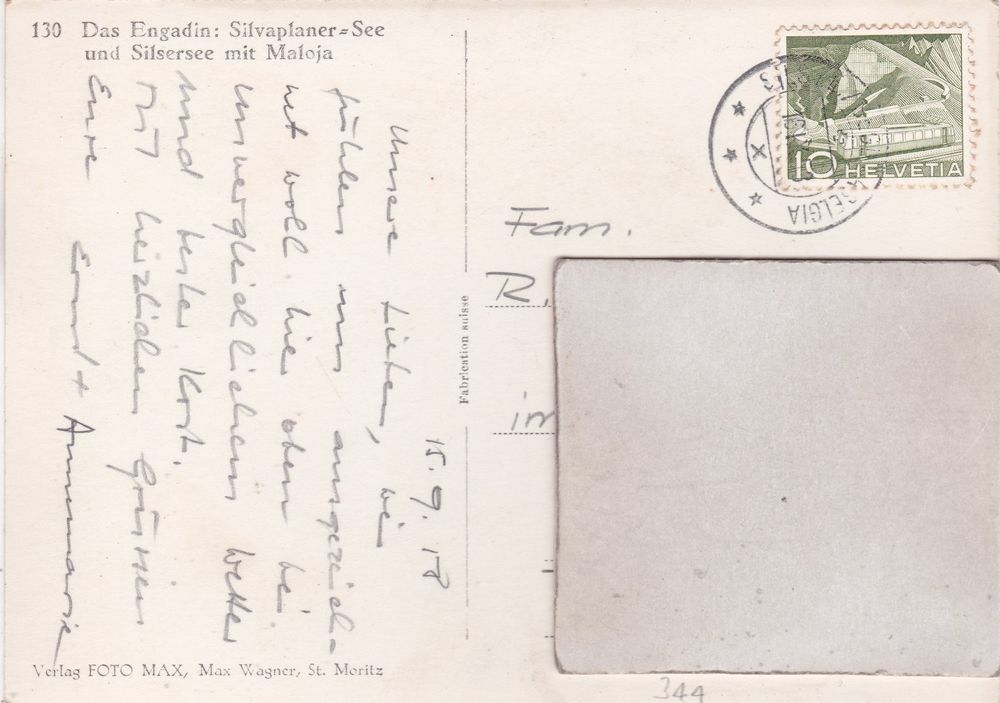 130 Das Engadin: Silvaplaner=See
und Silsersee mit Maloja
15. 9. 18
Unsere Lieben, wir
fühlen uns ausgezeich-
net wohl hier oben bei
unvergleichlichem Wetter
und bester Kost.
Mit herzlichen Grüssen
Eure Ernst + Annemarie
Verlag FOTO MAX, Max Wagner, St. Moritz
Fabrication suisse
10 HELVETIA
SELGIA
X
Fam.
R.
im
344